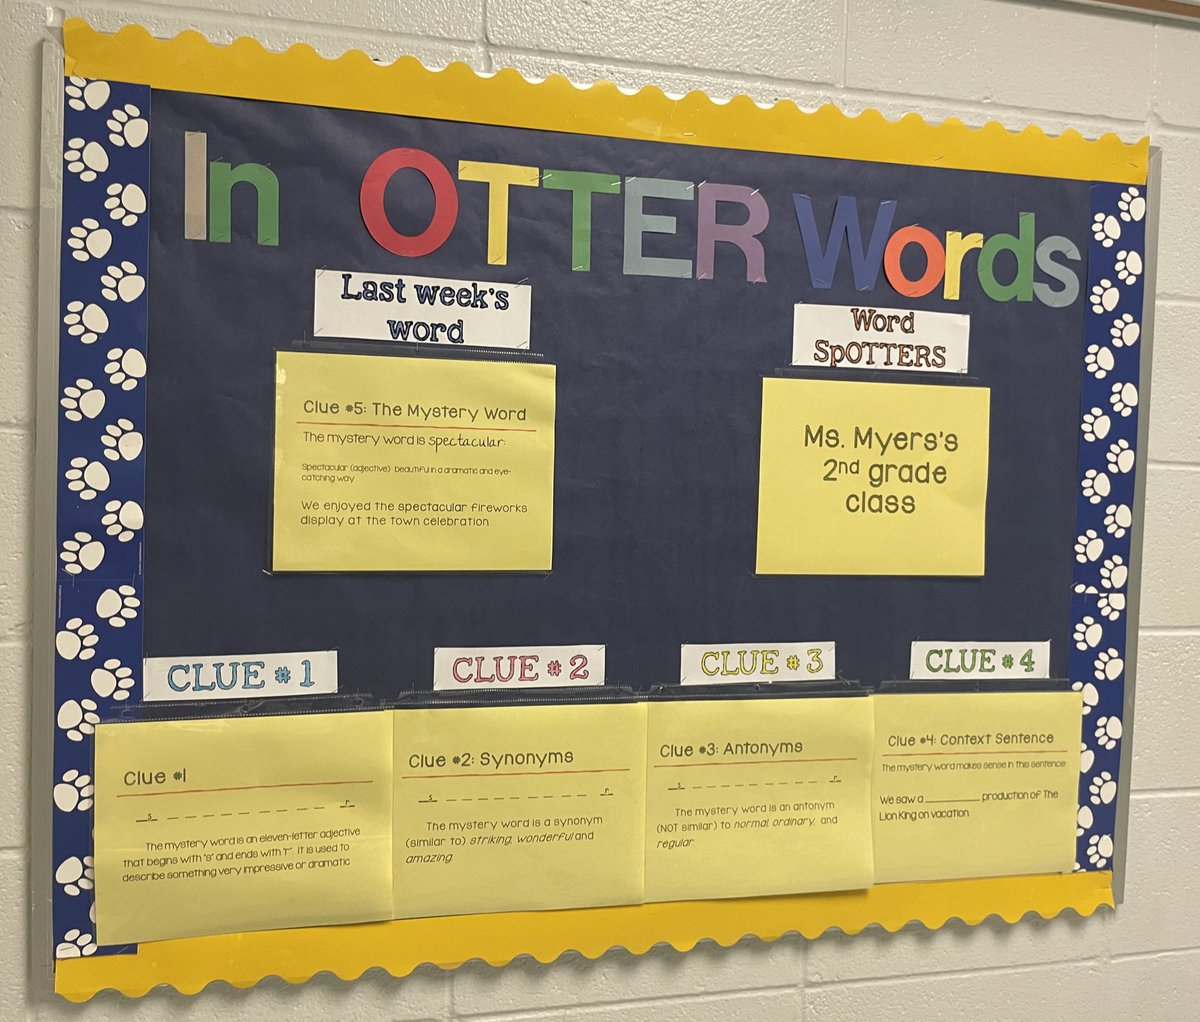 In OTTER Words
Last week's
word
Clue #5: The Mystery Word
The mystery word is spectacular.
Spectacular (adjective): beautiful in a dramatic and eye-
catching way
We enjoyed the spectacular fireworks
display at the town celebration.
Word
SpOTTERS
Ms. Myers's
2nd grade
class
CLUE #1
Clue #1
s _ _ _ _ _ _ _ _ _ r
The mystery word is an eleven-letter adjective
that begins with "s" and ends with "r". It is used to
describe something very impressive or dramatic
CLUE #2
Clue #2: Synonyms
s _ _ _ _ _ _ _ _ _ r
The mystery word is a synonym
(similar to) striking, wonderful and
amazing.
CLUE #3
Clue #3: Antonyms
s _ _ _ _ _ _ _ _ _ r
The mystery word is an antonym
(NOT similar) to normal, ordinary, and
regular.
CLUE #4
Clue #4: Context Sentence
The mystery word makes sense in this sentence:
We saw a __________ production of The
Lion King on vacation.